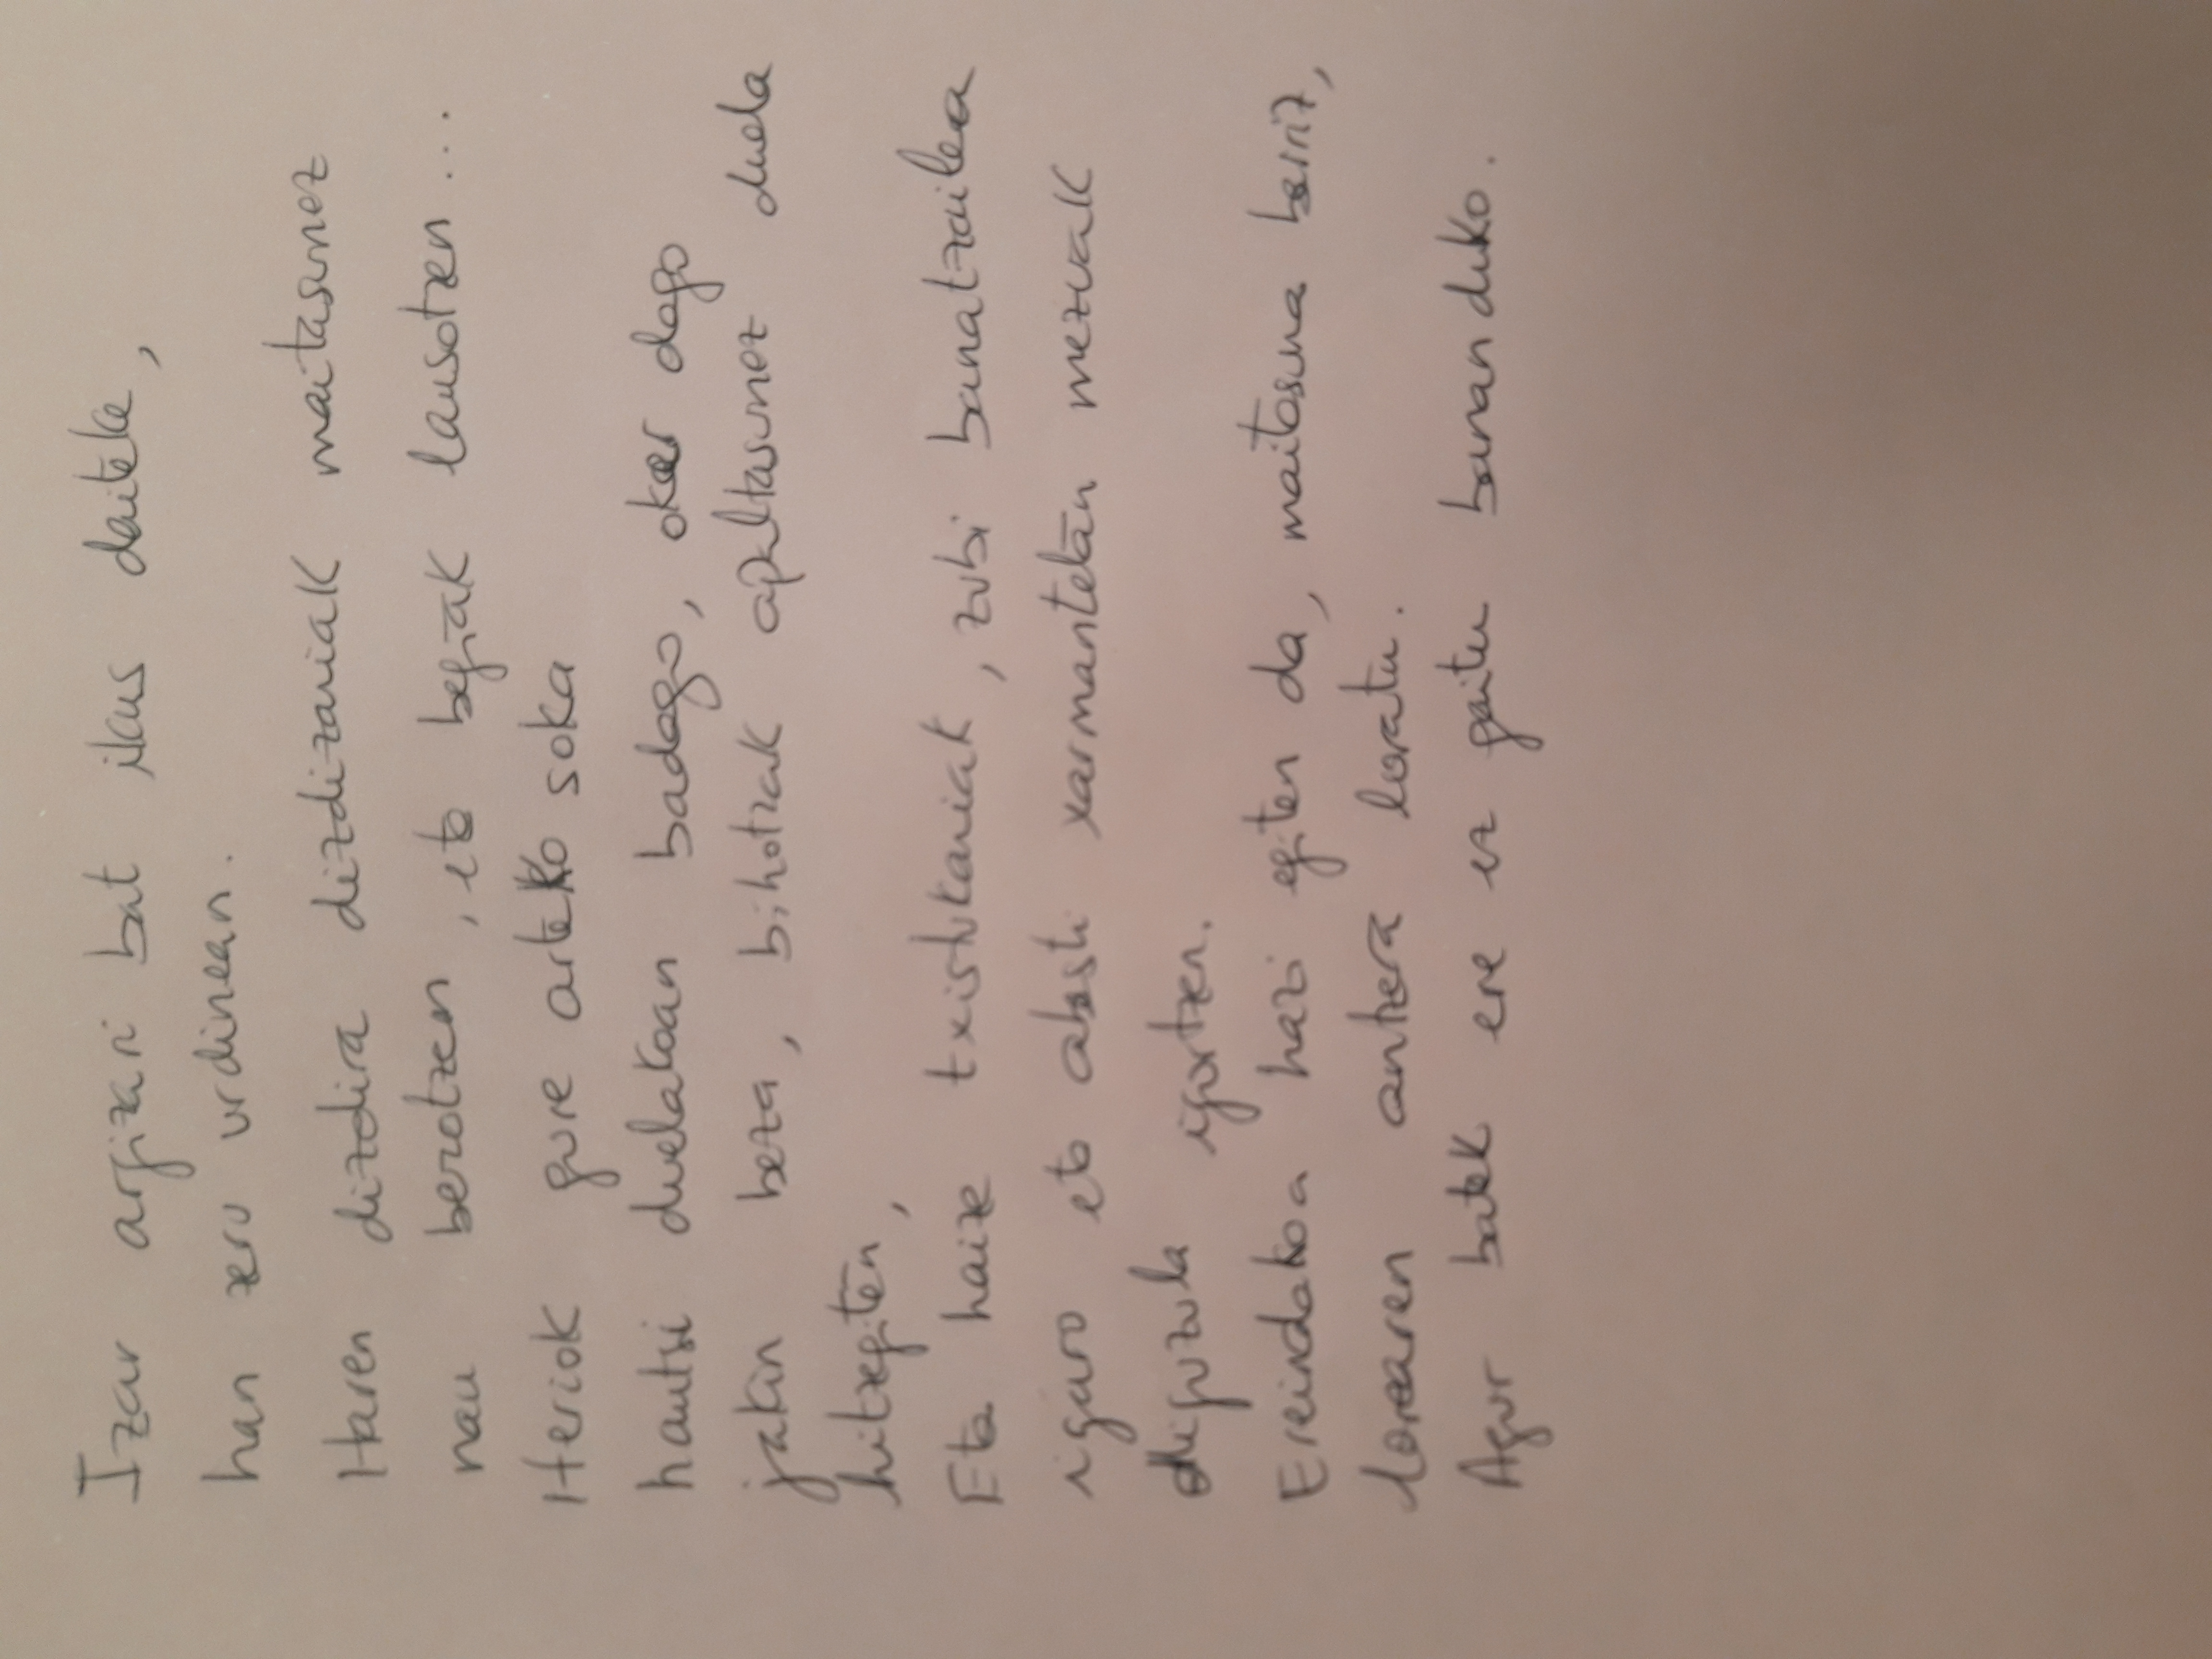 Izar argizari bat ikus daiteke,
han zeru urdinean.
Haren dizdira dizdizariak maitasunez
nau berotzen, eta begiak lausotzen...
Heriok gure arteko soka
hautsi duelakoan badago, oker dago
jakin beza, bihotzak apaltasunez duela
hitzegiten,
Eta haize txistukariak, zubi banatzailea
igaro eta abesti xarmantetan mezuak
diguzula igortzen.
Ereindakoa hazi egiten da, maitasuna berriz,
lorearen antzera loratu.
Agur batek ere ez gaitu bananduko.